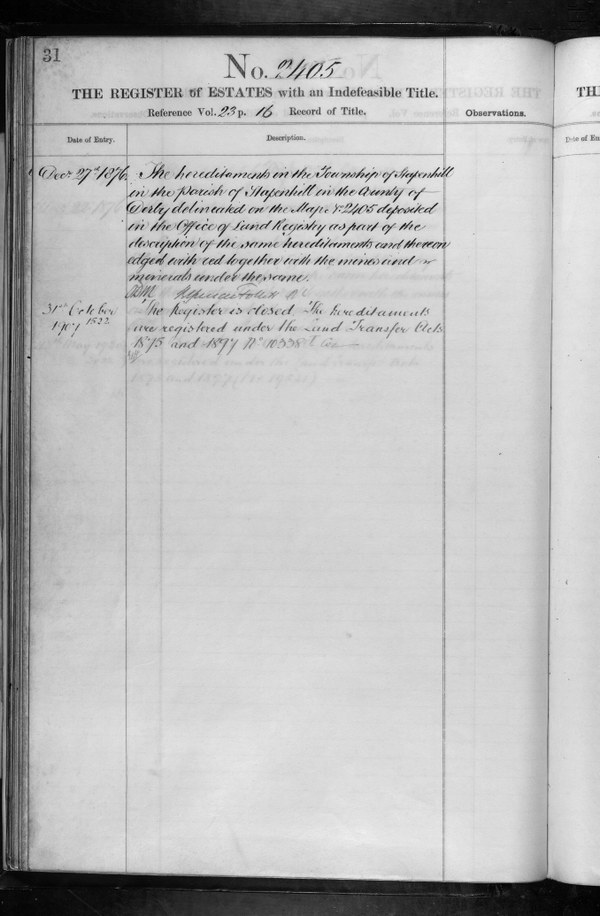 31
No. 2405
THE REGISTER of ESTATES with an Indefeasible Title.
Reference Vol. 23 p. 16 Record of Title.
Observations.
Date of Entry.
Description.
Decr 27th 1876.
The hereditaments in the Township of Stapenhill
in the parish of Stapenhill in the County of
Derby delineated on the Map 2405 deposited
in the Office of Land Registry as part of the
description of the same hereditaments and thereon
edged with red together with the mines and
minerals under the same.
31st October
1907 1522
The Register is closed The hereditaments
are registered under the Land Transfer Acts
1875 and 1897 No 10338
TH
Date of En